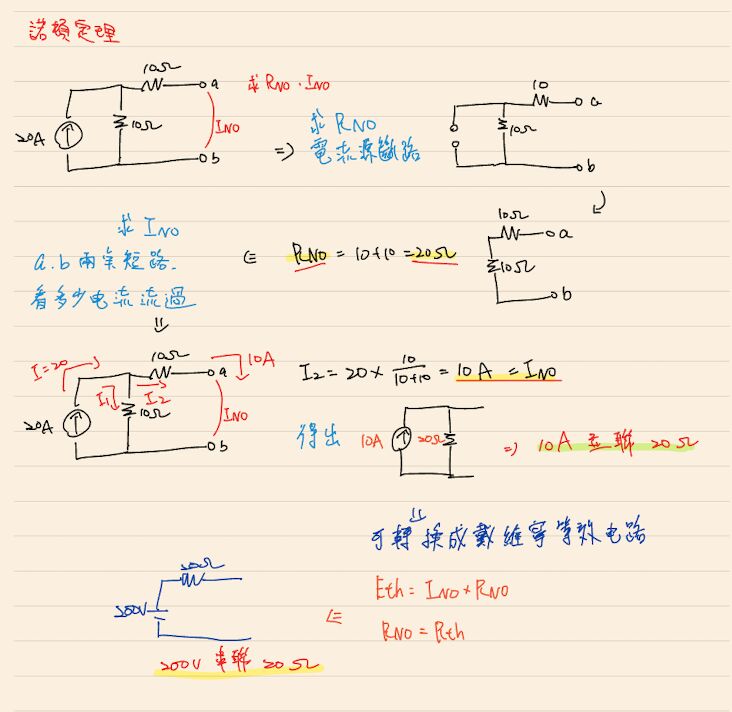 諾頓定理
10Ω
a
求 RNO . INO
20A
10Ω
INO
b
⇒
求 RNO
電流源斷路
10
a
10Ω
b
求 INO
a.b 兩端短路.
看多少电流流過
⇐ RNO = 10+10 = 20Ω
10Ω
a
10Ω
b
I=20
10Ω
a
10A
I1
I2
20A
10Ω
INO
b
I2 = 20 × 10/(10+10) = 10A = INO
得出
10A
20Ω
⇒ 10A 並聯 20Ω
可轉換成戴維寧等效电路
Eth = INO × RNO
RNO = Rth
⇐
20Ω
200V
200V 串聯 20Ω